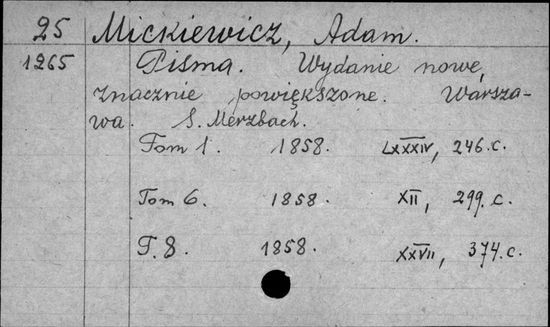 25 Mickiewicz, Adam.
1265 Pisma. Wydanie nowe,
znacznie powiększone. Warsza-
wa. S. Merzbach.
Tom 1. 1858. LXXXIV, 246.c.
Tom 6. 1858. XII, 299.c.
T.8. 1858. XXVII, 374.c.